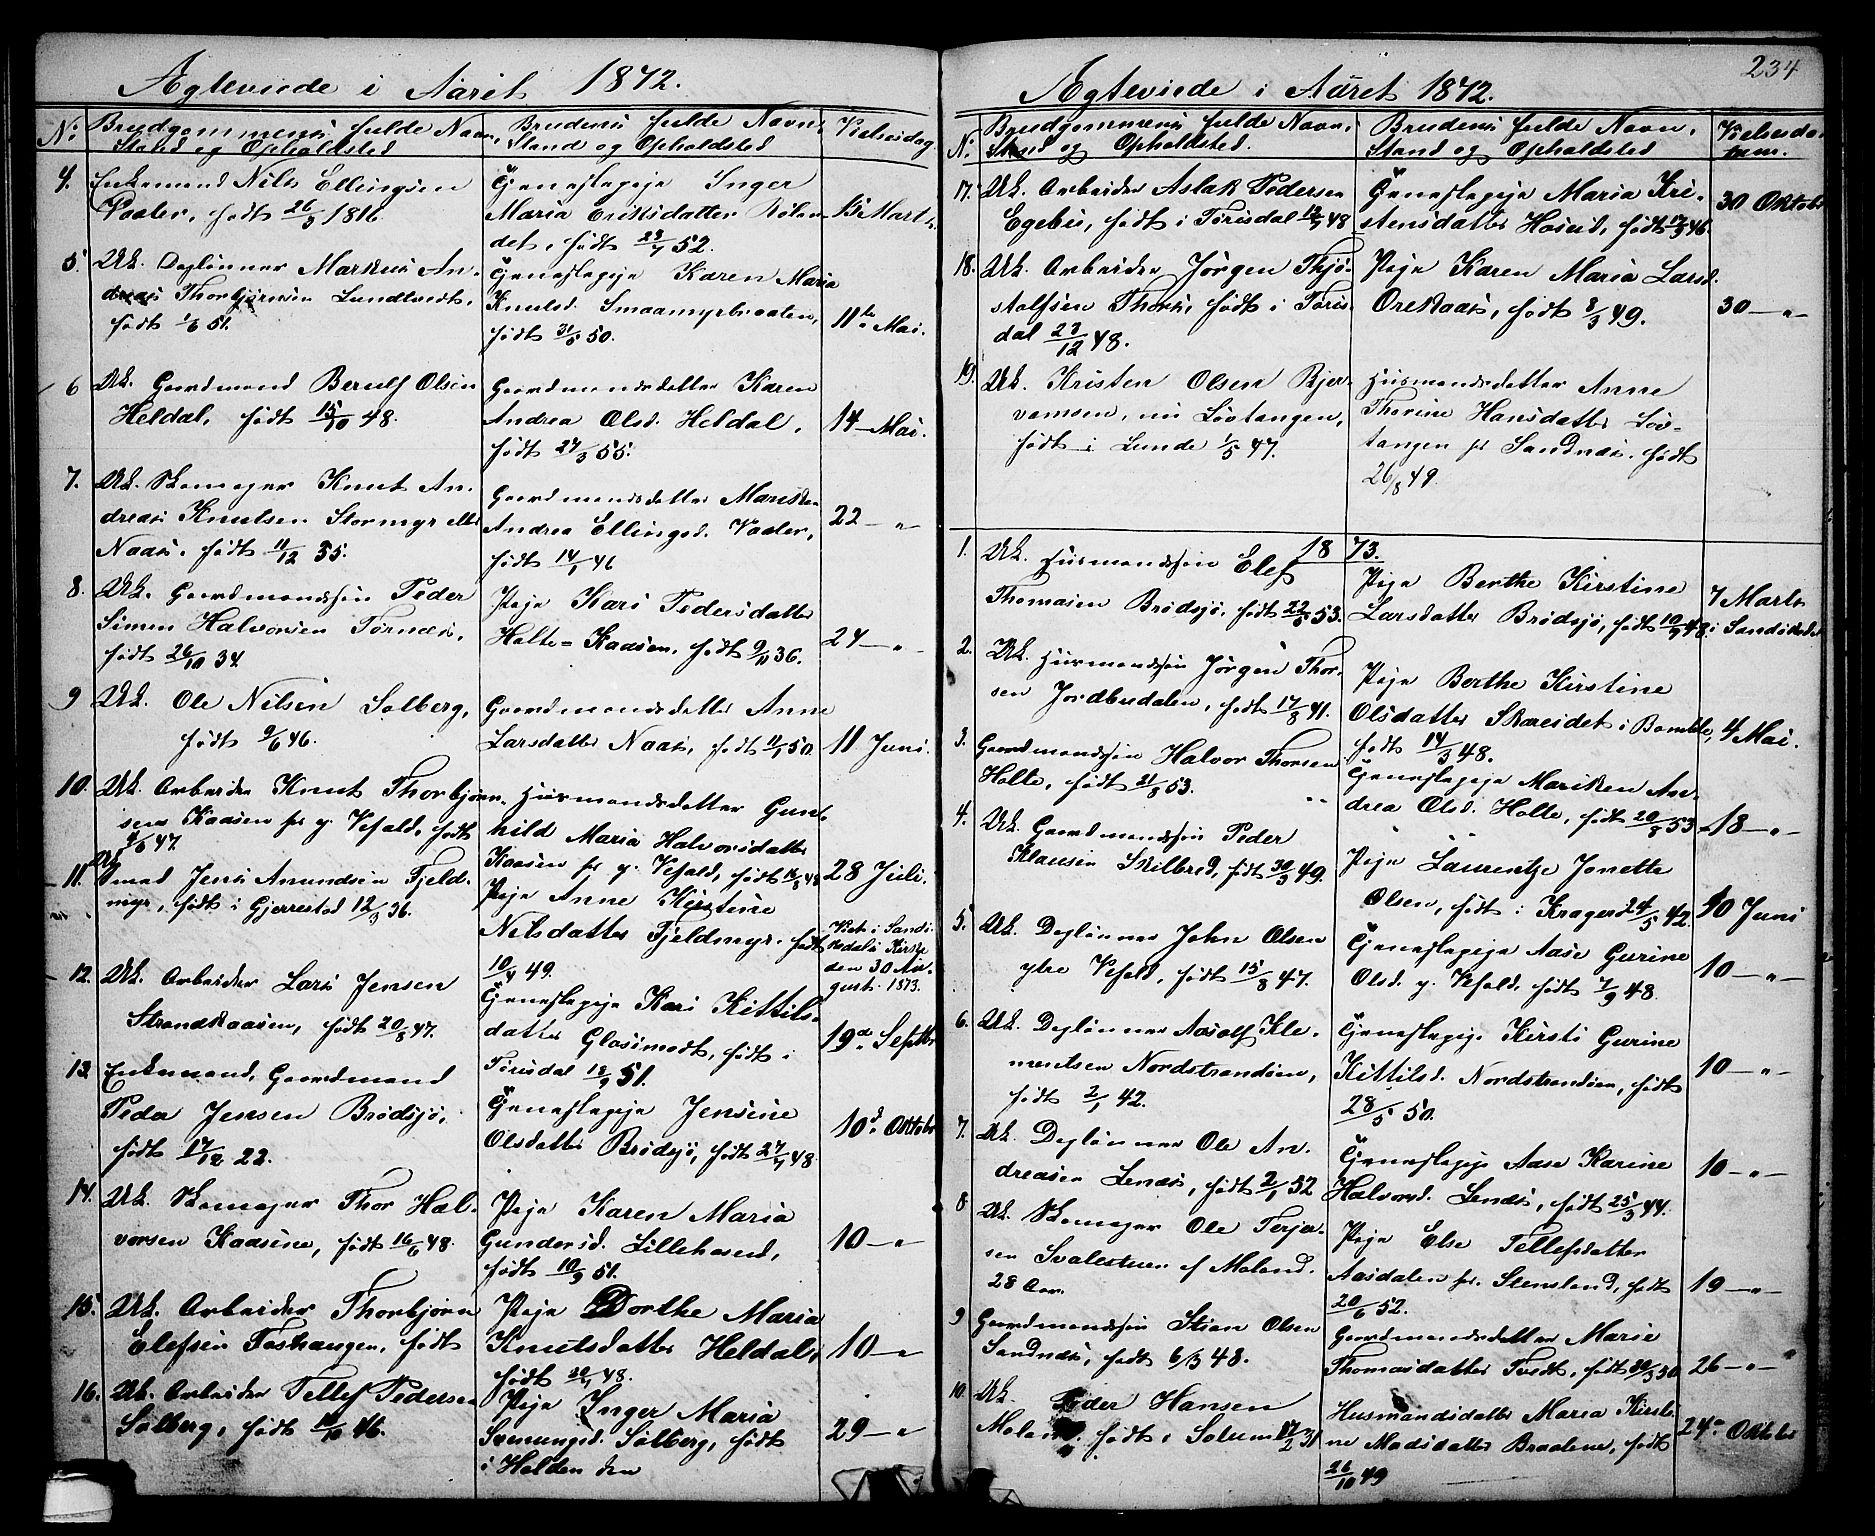 Ægteviede i Aaret 1872.
No: Brudgommens fulde Navn, Stand og Opholdsted
Brudens fulde Navn, Stand og Opholdsted
Vielsesdag
4. Enkemand Nils Ellingsen
Vaaler, født 26/3 1816.
Gaardspige Inger
Maria Eriksdatter
det, født 23/1 52.
15 Marts
5. Uk. Dagløнner Markus An-
dreas Thorbjørnsen Lundtvedt,
født 1/6 51.
Karen Maria
Knutsd. Smaamyrbraaten,
født 31/5 50.
11te Mai.
6 Uk. Gaardmand Berulf Olsen
Heldal, født 15/10 48.
Gaardmandsdatter Karen
Andrea Olsd. Heldal,
født 27/3 55.
14 - Mai.
7. Uk. Skomager Knut An-
dreas Knutsen Stormyr eller
Naas, født 11/12 35.
Gaardmandsdatter Marthe
Andrea Ellingsd. Vaaler,
født 14/1 46
22 - „
8. Uk. Gaardmandssøn Peder
Simon Halvorsen Tørnes,
født 26/10 34.
Pige Kari Pedersdatter
Holte-Kaasen, født 9/11 36.
24 - „
9 Uk. Ole Nilsen Solberg,
født 9/6 46.
Gaardmandsdatter Anne
Larsdatter Naas, født 11/1 50.
11 Juni.
10. Uk. Arbeider Knut Thorbjørn-
sen Kaasen pr y. Vefald, født
47.
Husmandsdatter Gun-
hild Maria Halvorsdatter
Kaasen pr y. Vefald, født 48
28 Juli.
11. Uk. Smed Jens Amundsen Fjeld-
myr, født i Gjerrestad 12/3 36.
Pige Anne Kirstine
Nilsdatter Fjeldmyr, født
10/4 49.
Viet i Sandø-
kedals Kirke
den 30 Au-
gust. 1873.
12. Uk. Arbeider Lars Jensen
Strandkaasen, født 20/8 47.
Kari Kittils-
datter Glosimodt, født i
Tørisdal 51.
19de Septbr
13. Enkemand, Gaardmand
Peder Jensen Brødsjø,
født 17/12 22.
Jensine
Olsdatter Brødsjø, født 27/7 48.
10d. Oktobr
14. Uk. Skomager Thor Hal-
vorsen Kaasene, født 16/6 48.
Pige Karen Maria
Gundersd. Lillehaseid,
født 10/9 51.
10 - „
15. Uk. Arbeider Thorbjørn
Elefsen Foshaugen, født
Pige Dorthe Maria
Knutsdatter Heldal,
født 48.
10 - „
16. Uk. Arbeider Tellef Pedersen
Solberg, født 46.
Pige Inger Maria
Svenungsd. Solberg, født
i Holden den
29 - „
234
Ægteviede i Aaret 1872.
No: Brudgommens fulde Navn, Stand og Opholdsted.
Brudens fulde Navn, Stand og Opholdsted
17. Uk. Arbeider Aslak Pedersen
Egebu, født i Tørisdal 48
Maria Kri-
stensdatter Haseid, født 17/3 46.
30 Oktobr
18. Uk. Arbeider Jørgen Thjø-
stolfsen Thors, født i Tøris-
dal 23/12 48.
Pige Karen Maria Larsd.
Orekaas, født 8/3 49.
30 - „
19. Uk. Kristen Olsen Bjer-
vamsen, nu Løvtangen,
født i Lunde 1/5 47.
Husmandsdatter Anne
Thorine Hansdatter Løv-
tangen pr Sandnæs. født
26/8 49.
1873.
1. Uk. Husmandssøn Elef
Thomasen Brødsjø, født 22/5 53.
Pige Berthe Kirstine
Larsdatter Brødsjø, født 10/7 48
7 Marts
i Sandøkedal
2. Uk. Husmandssøn Jørgen Thor-
sen Jordbudalen, født 17/8 41.
Pige Berthe Kirstine
Olsdatter Skareidet i Bamble,
født 14/3 48.
4 Mai.
3. Gaardmandssøn Halvor Thorsen
Holte, født 21/8 53.
Mariken An-
drea Olsd. Holte, født 20/8 53
18 - „
4. Uk. Gaardmandssøn Peder
Klausen Skilbred, født 30/3 49.
Pige Laurentze Jonette
Olsen, født i Kragerø 24/5 42.
10 Juni
5. Uk. Dagløнner John Olsen
ytre Vefald, født 15/8 47.
Aase Gurine
Olsd. y. Vefald, født 7/9 48.
10 - „
6. Uk. Dagløнner Aasolf Kle-
mentsen Nordstrandøen,
født 2/1 42.
Kirsti Gurine
Kittilsd. Nordstrandøen, født
28/5 50.
10 - „
7. Uk. Dagløнner Ole An-
dreasen Lenæs, født 2/1 52
Aase Karine
Halvorsd. Lenæs, født 25/3 44.
10 - „
8 Uk. Skomager Ole Terje-
sen Svalestuen af Moland.
28 Aar.
Pige Else Tellefsdatter
Aasdalen pr. Stensland, født
20/6 52.
19 - „
9 Gaardmandssøn Stian Olsen
Sandnæs, født 6/3 48.
Gaardmandsdatter Marie
Thomasdatter Tvedt, født 50
26 - „
10. Uk. Peder Hansen
født i Solum 17/2 31
Husmandsdatter Maria Kirsti-
ne Madsdatter Braatene, født
26/10 49
24de Oktobr